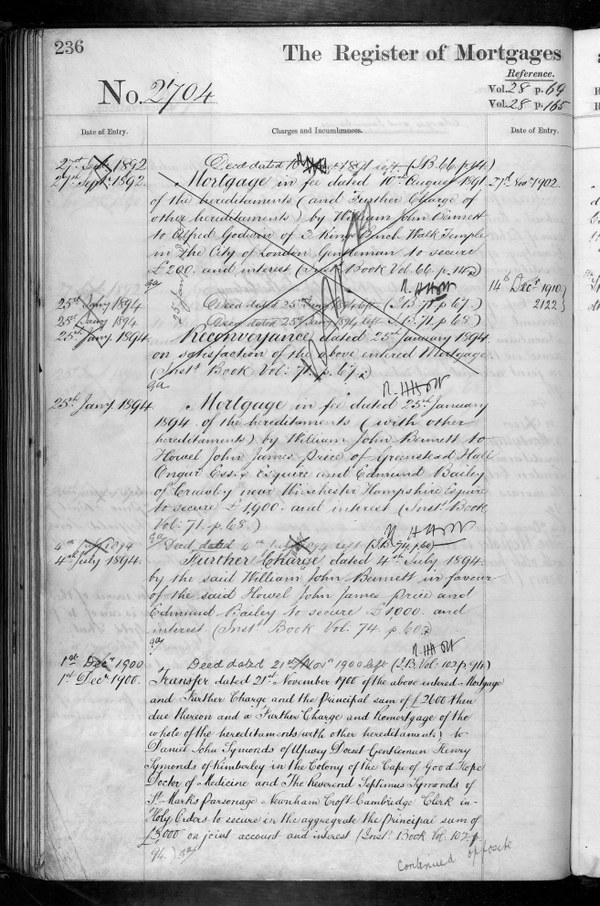 236
The Register of Mortgages
Reference.
No. 2704
Vol. 28 p. 69
Vol. 28 p. 165
Date of Entry.
Charges and Incumbrances.
Date of Entry.
27th Sept. 1892
Deed dated 10th 1891 left (I.B. 66. p. 142)
27th Sept. 1892.
Mortgage in fee dated 10th August 1891
27th Novr 1902.
of the hereditaments (and Further Charge of
other hereditaments) by William John Bennett
to Alfred Godwin of 3 Kings Bench Walk Temple
in the City of London Gentleman to secure
£200 and interest (Inst. Book Vol. 66. p. 142)
14th Decr 1910
2122
25th Jany 1894
Deed dated 25th Jany 1894 left (I.B. 71. p. 67.)
25th Jany 1894
Deed dated 25th Jany 1894 left (I.B. 71. p. 68)
25th Jany 1894.
Reconveyance dated 25th January 1894
on satisfaction of the above entered Mortgage
(Inst. Book Vol: 71. p. 67.)
25th Jany 1894.
Mortgage in fee dated 25th January
1894 of the hereditaments (with other
hereditaments) by William John Bennett to
Howel John James Price of Greenstead Hall
Ongar Essex Esquire and Edmund Bailey
of Crawley near Winchester Hampshire Esquire
to secure £1,900. and interest (Inst. Book
Vol: 71. p. 68.)
4th July 1894
Deed dated 4th July 1894 left (I.B. 74. p. 60)
4th July 1894.
Further Charge dated 4th July 1894.
by the said William John Bennett in favour
of the said Howel John James Price and
Edmund Bailey to secure £1000. and
interest (Inst. Book Vol. 74. p. 60.)
1st Decr 1900
Deed dated 21st Novr 1900 left (I.B. Vol. 102 p. 94)
1st Decr 1900.
Transfer dated 21st November 1900 of the above entered Mortgage
and Further Charge and the Principal sum of £2600 then
due thereon and a Further Charge and Remortgage of the
whole of the hereditaments (with other hereditaments) to
Daniel John Symonds of Upwey Dorset Gentleman Henry
Symonds of Kimberley in the Colony of the Cape of Good Hope
Doctor of Medicine and The Reverend Septimus Symonds of
St. Marks Parsonage Newnham Croft Cambridge Clerk in
Holy Orders to secure in the aggregate the Principal sum of
£3000 on joint account and interest (Inst. Book Vol. 102 p.
94.)
Continued opposite